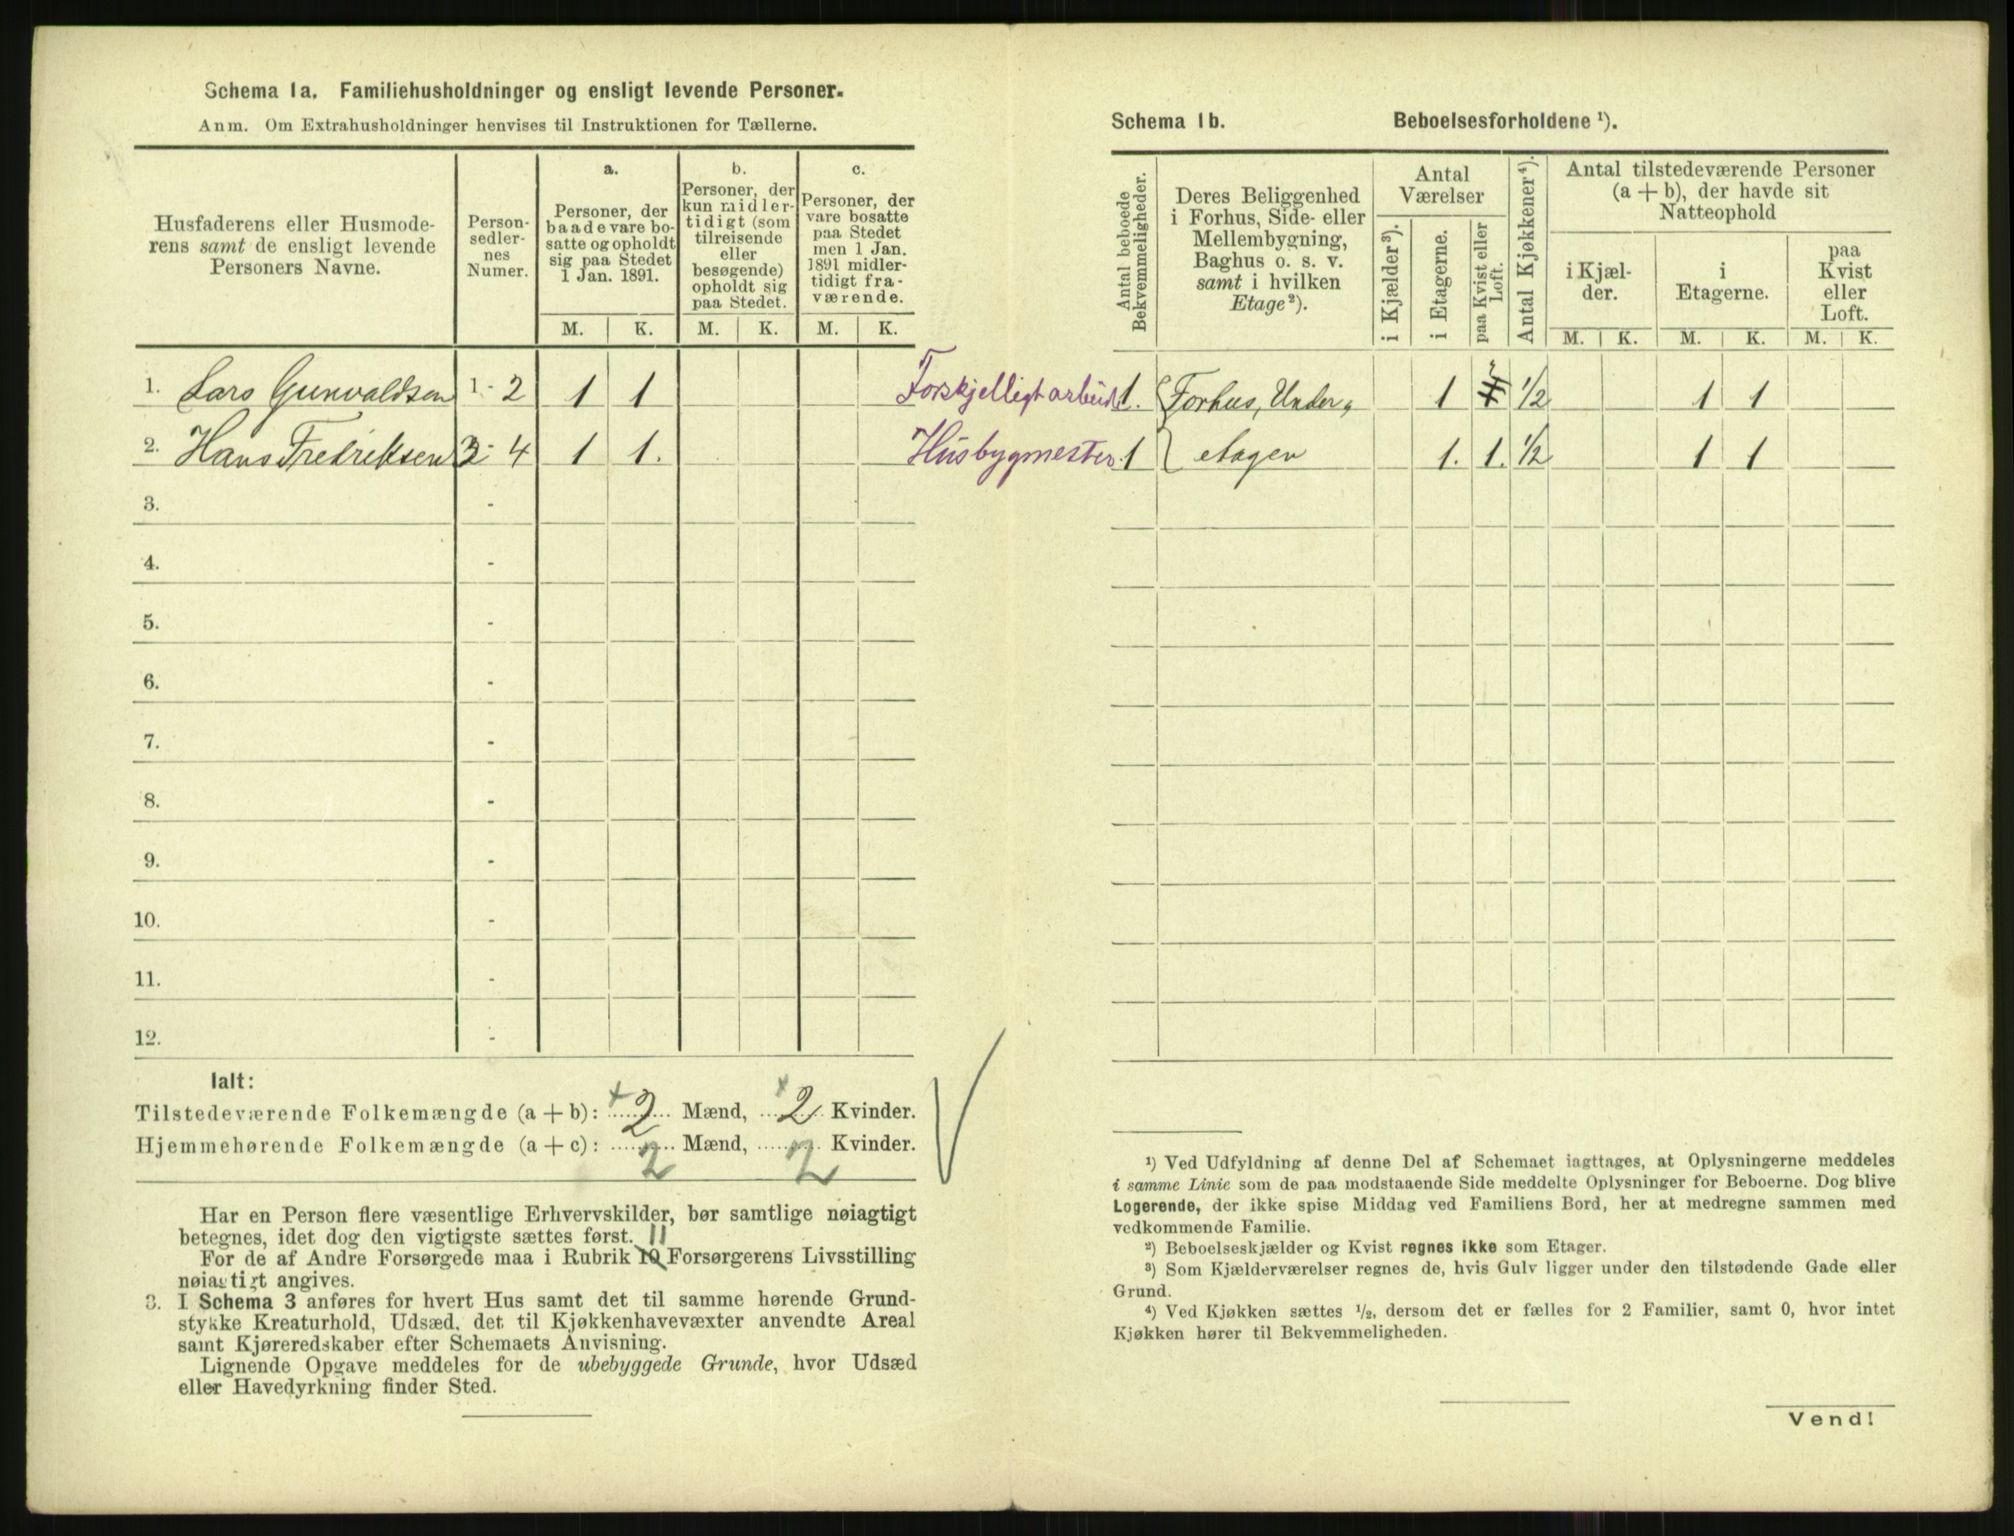 Schema 1a. Familiehusholdninger og ensligt levende Personer.
Anm. Om Extrahusholdninger henvises til Instruktionen for Tællerne.
Husfaderens eller Husmode-
rens samt de ensligt levende
Personers Navne.
Person-
sedler-
nes
Numer.
a.
Personer, der
baade vare bo-
satte og opholdt
sig paa Stedet
1 Jan. 1891.
b.
Personer, der
kun midler-
tidigt (som
tilreisende
eller
besøgende)
opholdt sig
paa Stedet.
c.
Personer, der
vare bosatte
paa Stedet
men 1 Jan.
1891 midler-
tidigt fra-
værende.
M. K. M. K. M. K.
1. Lars Gunvaldsen 1 - 2 1 1
2. Hans Fredriksen 3 - 4 1 1.
3. -
4. -
5. -
6. -
7. -
8. -
9. -
10. -
11. -
12. -
Ialt:
Tilstedeværende Folkemængde (a + b): 2 Mænd, 2 Kvinder.
Hjemmehørende Folkemængde (a + c): 2 Mænd, 2 Kvinder.
Har en Person flere væsentlige Erhvervskilder, bør samtlige nøiagtigt
betegnes, idet dog den vigtigste sættes først. 11
For de af Andre Forsørgede maa i Rubrik 10 Forsørgerens Livsstilling
nøiagtigt angives.
3. I Schema 3 anføres for hvert Hus samt det til samme hørende Grund-
stykke Kreaturhold, Udsæd, det til Kjøkkenhavevæxter anvendte Areal
samt Kjøreredskaber efter Schemaets Anvisning.
Lignende Opgave meddeles for de ubebyggede Grunde, hvor Udsæd
eller Havedyrkning finder Sted.
Schema 1b. Beboelsesforholdene ¹).
Antal beboede
Bekvemmeligheder.
Deres Beliggenhed
i Forhus, Side- eller
Mellembygning,
Baghus o. s. v.
samt i hvilken
Etage²).
Antal
Værelser
i Kjælder³).
i Etagerne.
paa Kvist eller
Loft.
Antal Kjøkkener⁴).
Antal tilstedeværende Personer
(a + b), der havde sit
Natteophold
i Kjæl-
der.
i
Etagerne.
paa
Kvist
eller
Loft.
M. K. M. K. M. K.
Forskjelligt arbeide 1. Forhus, Under„ 1 ½ 1 1
Husbygmester 1 etagen 1. 1. ½ 1 1
¹) Ved Udfyldning af denne Del af Schemaet iagttages, at Oplysningerne meddeles
i samme Linie som de paa modstaaende Side meddelte Oplysninger for Beboerne. Dog blive
Logerende, der ikke spise Middag ved Familiens Bord, her at medregne sammen med
vedkommende Familie.
²) Beboelseskjælder og Kvist regnes ikke som Etager.
³) Som Kjælderværelser regnes de, hvis Gulv ligger under den tilstødende Gade eller
Grund.
⁴) Ved Kjøkken sættes ½, dersom det er fælles for 2 Familier, samt 0, hvor intet
Kjøkken hører til Bekvemmeligheden.
Vend!